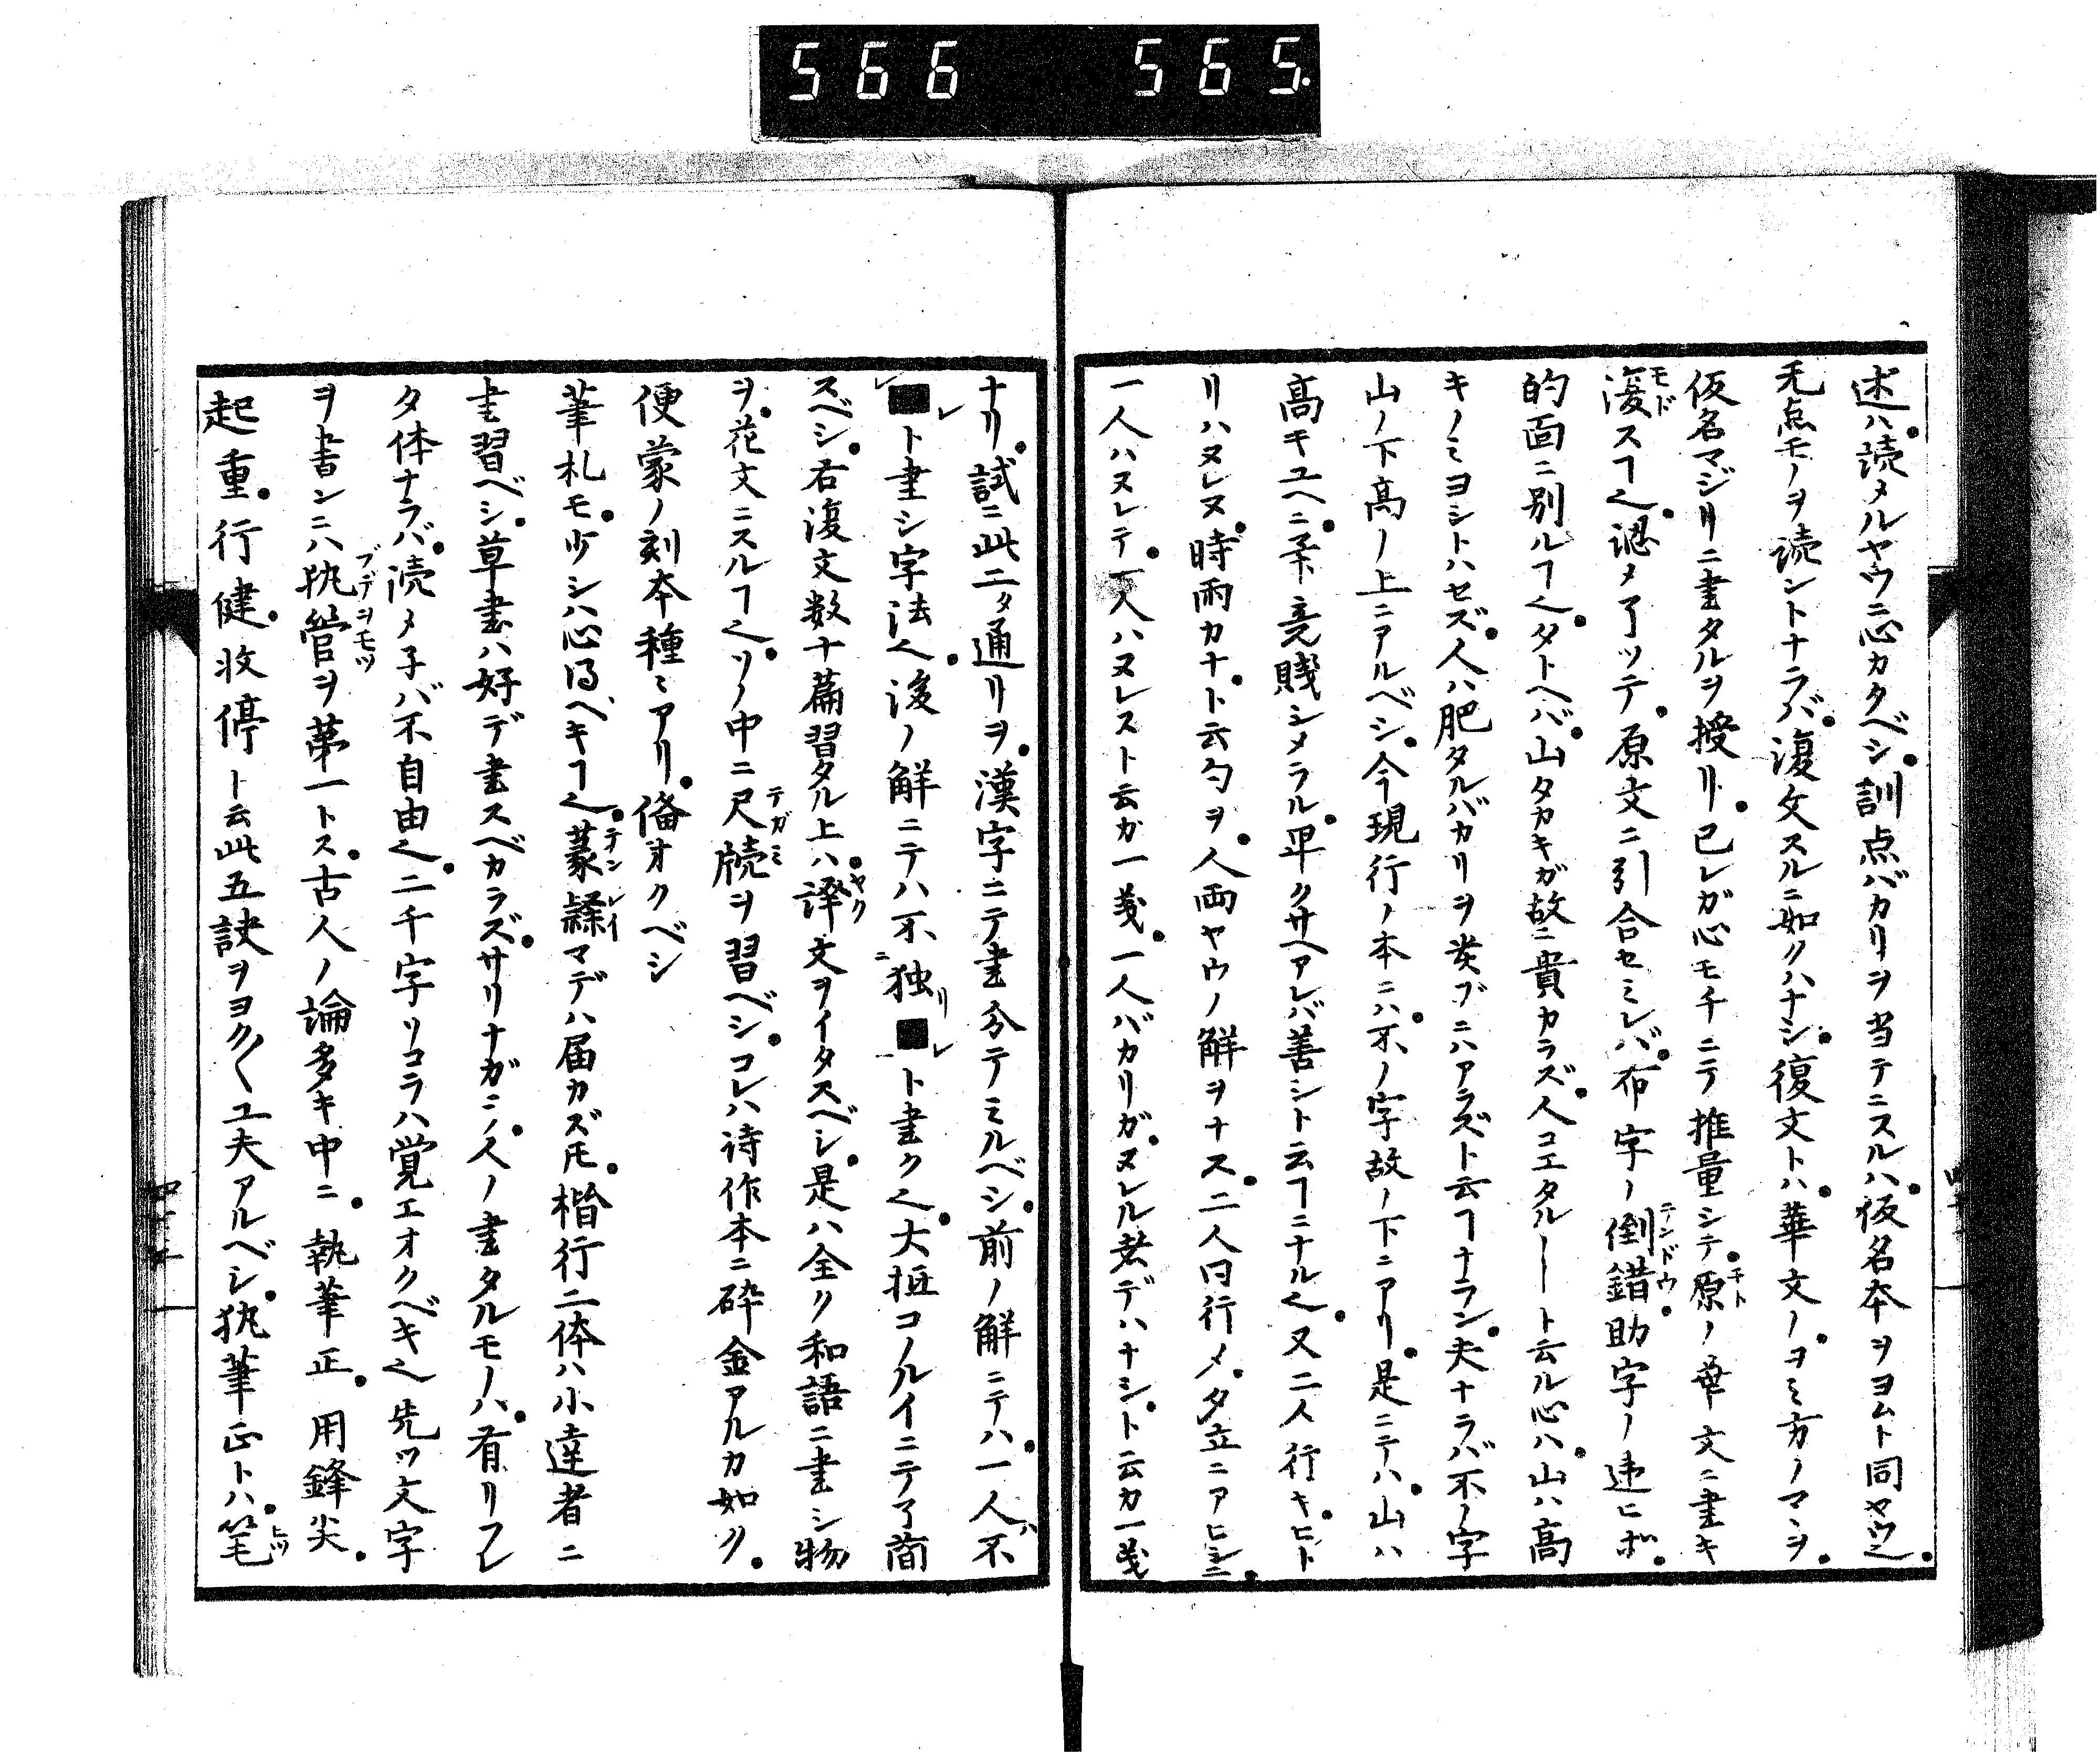 566 565.
述ハ読メルヤウニ心カクベシ訓点バカリヲ当テニスルハ仮名本ヲヨムト同ヤウ也
无点モノヲ読ントナラバ復文スルニ如クハナシ復文トハ華文ノヨミ方ノマヽヲ
仮名マジリニ書タルヲ授リ已レガ心モチニテ推量シテ原ノ華文ニ書キ
復スヿ也認メ了ッテ原文ニ引合セミレバ布字ノ倒錯助字ノ違ヒガ
的面ニ別ルヿ也タトヘバ山タカキガ故ニ貴カラズ人コエタル―ト云ル心ハ山ハ高
キノミヨシトハセズ人ハ肥タルバカリヲ
山ノ下高ノ上ニアルベシ今現行ノ本ニハ不ノ字故ノ下ニアリ是ニテハ山ハ
高キユヘニ
リハヌレヌ時雨カナト云句ヲ人両ヤウノ解ヲナス二人同行メタ立ニアヒシニ
一人ハヌレテ一人ハヌレスト云カ一義一人バカリガヌレル者デハナシト云カ一義
ナリ試ニ此二タ通リヲ漢字ニテ書分テミルベシ前ノ解ニテハ一人不
■ト書シ字法也後ノ解ニテハ不独リ■ト書ク也大抵コノルイニテ了簡
スベシ右復文数十篇習タル上ハ譯文ヲイタスベシ是ハ全ク和語ニ書シ物
ヲ花文ニスルヿ也ソノ中ニ尺牘ヲ習ベシコレハ詩作本ニ砕金アルカ如ク
便蒙ノ刻本種ミアリ偹オクベシ
筆札モ少シハ心得ベキヿ也篆隷マデハ届カズ𪜈楷行二体ハ小達者ニ
書習ベシ草書ハ好デ書スベカラズサリナガラ人ノ書タルモノハ有リフレ
タ体ナラバ読メ子バ不自由也二千字リコラハ覚エオクベキ也先ッ文字
ヲ書ンニハ執管ヲ第一トス古人ノ論多キ中ニ執筆正用鋒尖
起重行健收停ト云此五訣ヲヨク〱工夫アルベシ执筆正トハ笔